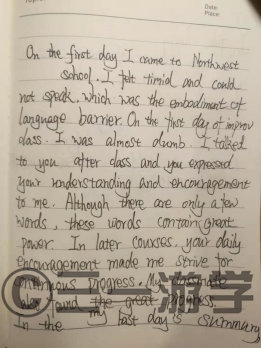 Date:
Place:
On the first day I came to Northwest
school. I felt timid and could
not speak, which was the embodiment of
language barrier. On the first day of improv
class. I was almost dumb. I talked
to you after class and you expressed
your understanding and encouragement
to me. Although there are only a few
words, these words contain great
power. In later courses, your daily
encouragement made me strive for
continuous progress. My
found the great progress.
In the my last day's summary
三一游学